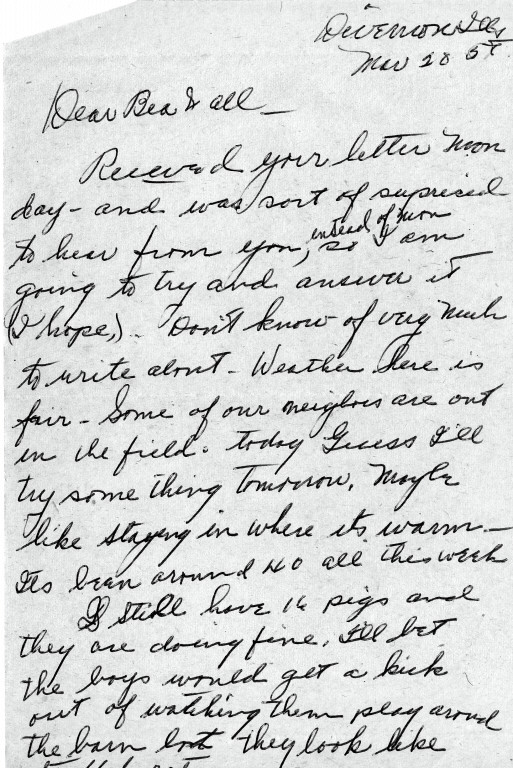 Divernon Ills
Mar 28 5
Dear Bea & all –
Received your letter Mon
day – and was sort of supprised
to hear from you, instead of mom
so I am
going to try and answer it
(I hope,). Don't know of very much
to write about – Weather here is
fair – Some of our neighbors are out
in the field. today Guess I'll
try some thing tomorrow, Maybe
like staying in where its warm. –
Its been around 40 all this week
I still have 14 pigs and
they are doing fine. I'll bet
the boys would get a kick
out of watching them play around
the barn lot they look like